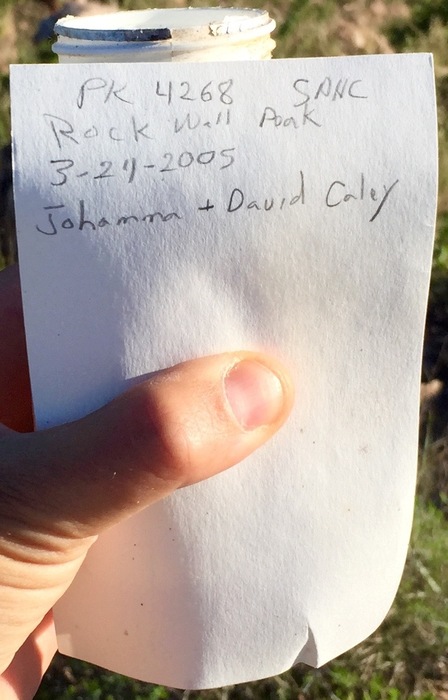 PK 4268 SAHC
Rock Wall Peak
3-27-2005
Johanna + David Caley